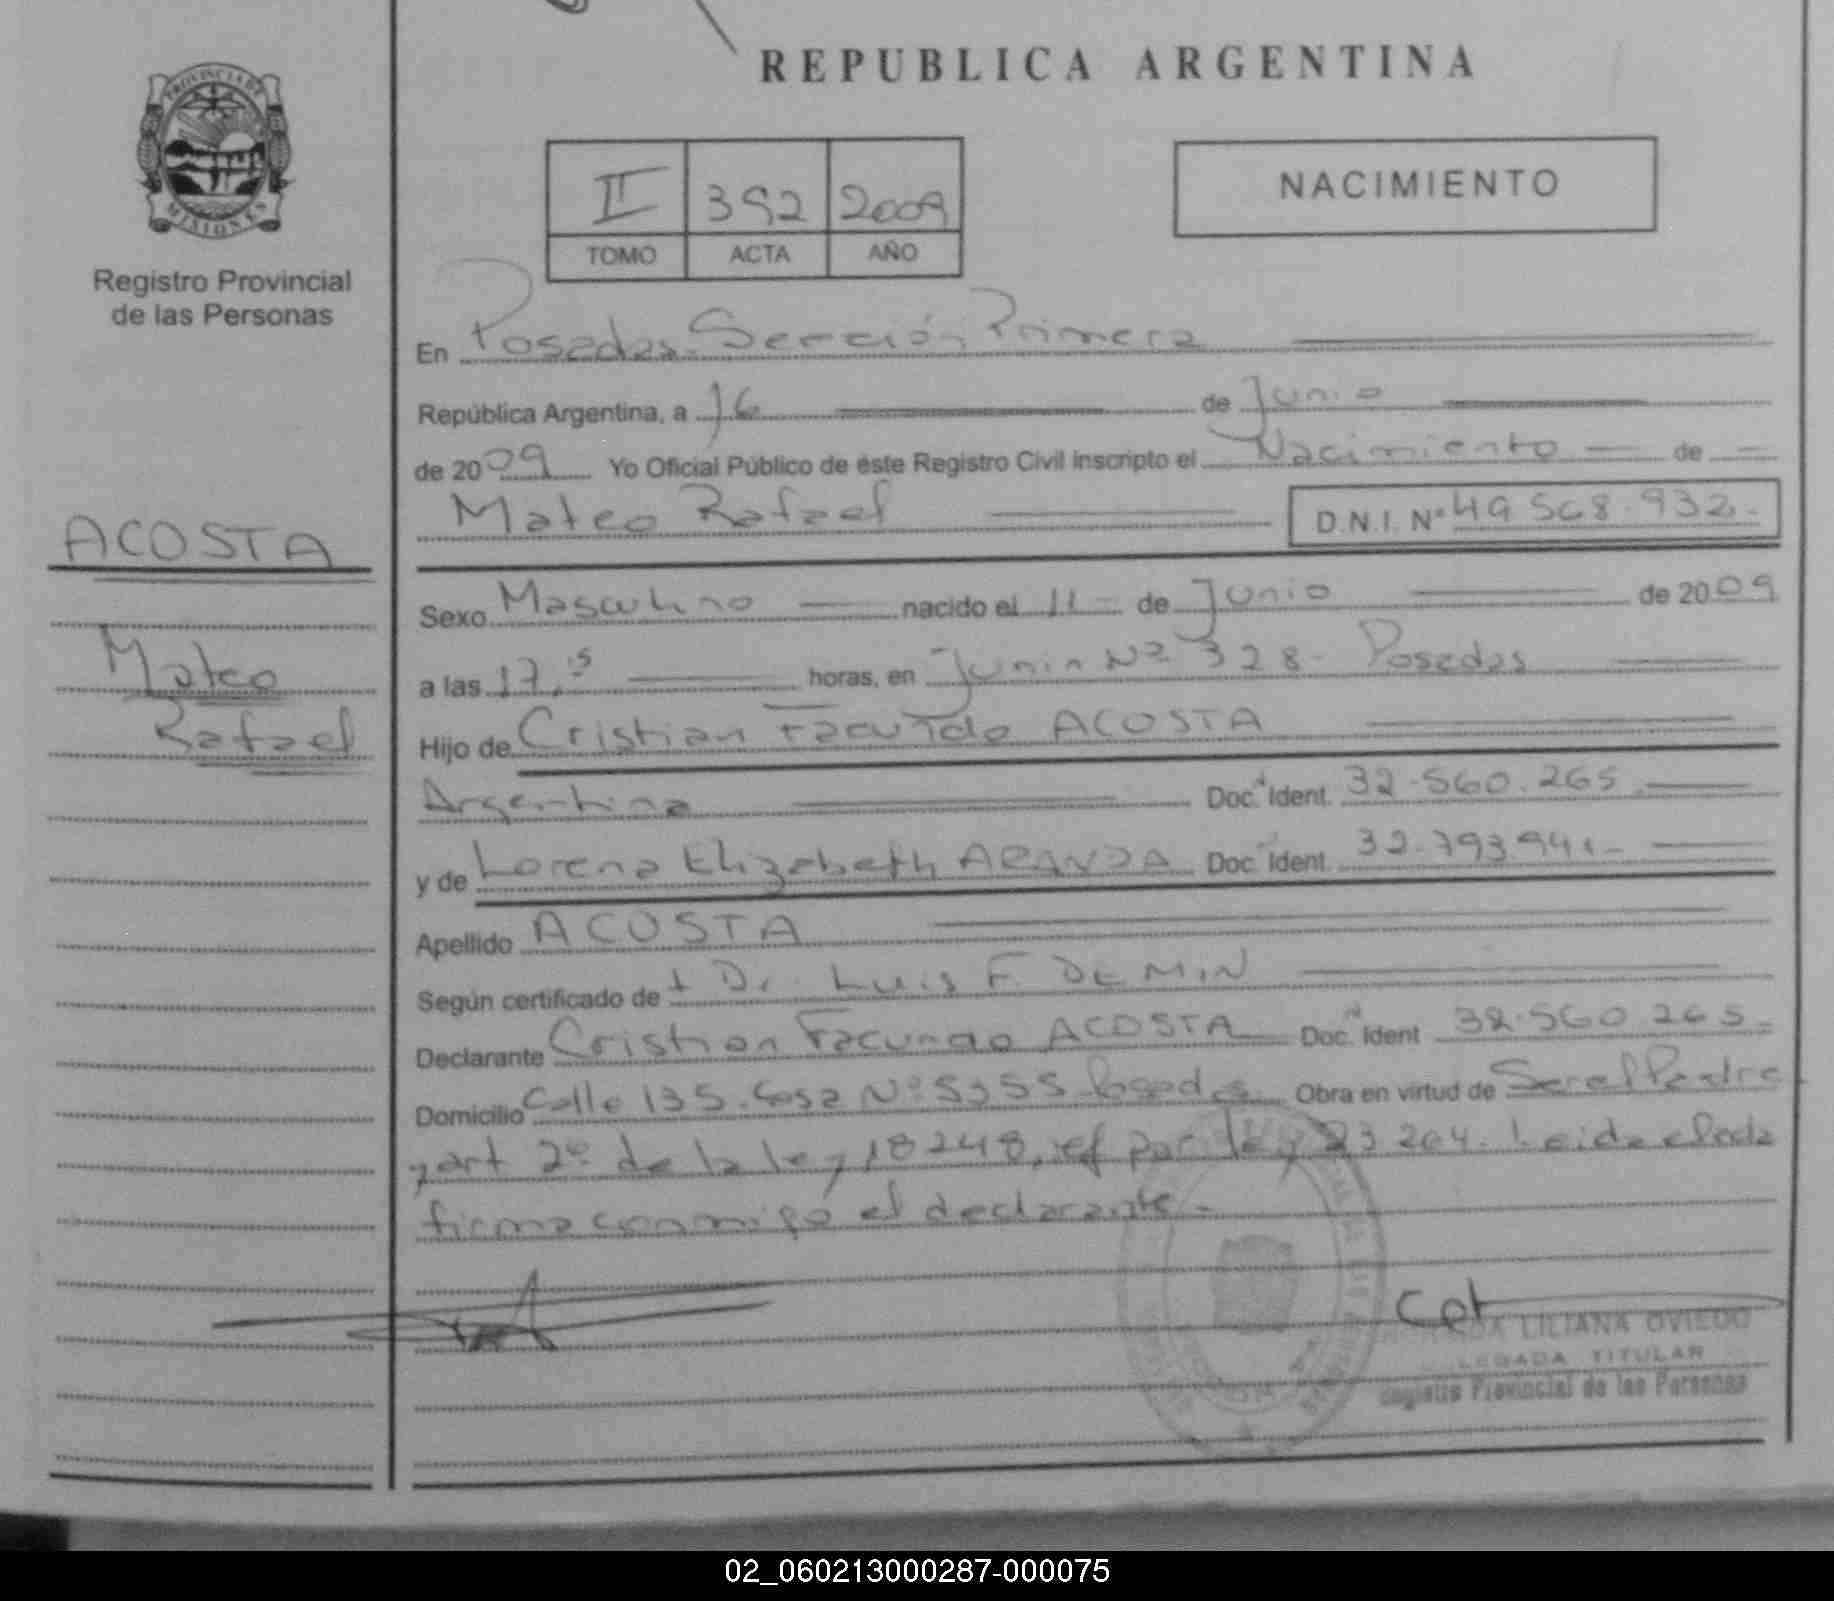 REPUBLICA ARGENTINA
PROVINCIA DE
MISIONES
Registro Provincial
de las Personas
II 392 2009
TOMO ACTA AÑO
NACIMIENTO
En Posadas. Sección Primera
República Argentina, a 16 de Junio
de 2009 Yo Oficial Público de éste Registro Civil inscripto el Nacimiento de
Mateo Rafael D.N.I. Nº 49 568.932.
ACOSTA
Mateo
Rafael
Sexo Masculino nacido el 11 de Junio de 2009
a las 17,5 horas, en Junin Nº 328. Posadas
Hijo de Cristian Facundo ACOSTA
Argentina Doc. Ident. 32.560.265.
y de Lorena Elizabeth ARANDA Doc. Ident. 32.793.941.
Apellido ACOSTA
Según certificado de + Dr. Luis F. DEMIN
Declarante Cristian Facundo ACOSTA Doc. Ident 32.560 265.
Domicilio Calle 135. Casa Nº 5355 Posadas. Obra en virtud de Ser el Padre
y art 2º de la ley 18248, ref por ley 23 264. Leida el acta
firma conmigo el declarante.
LILIANA OVIEDO
TITULAR
Registro Provincial de las Personas
02_060213000287-000075